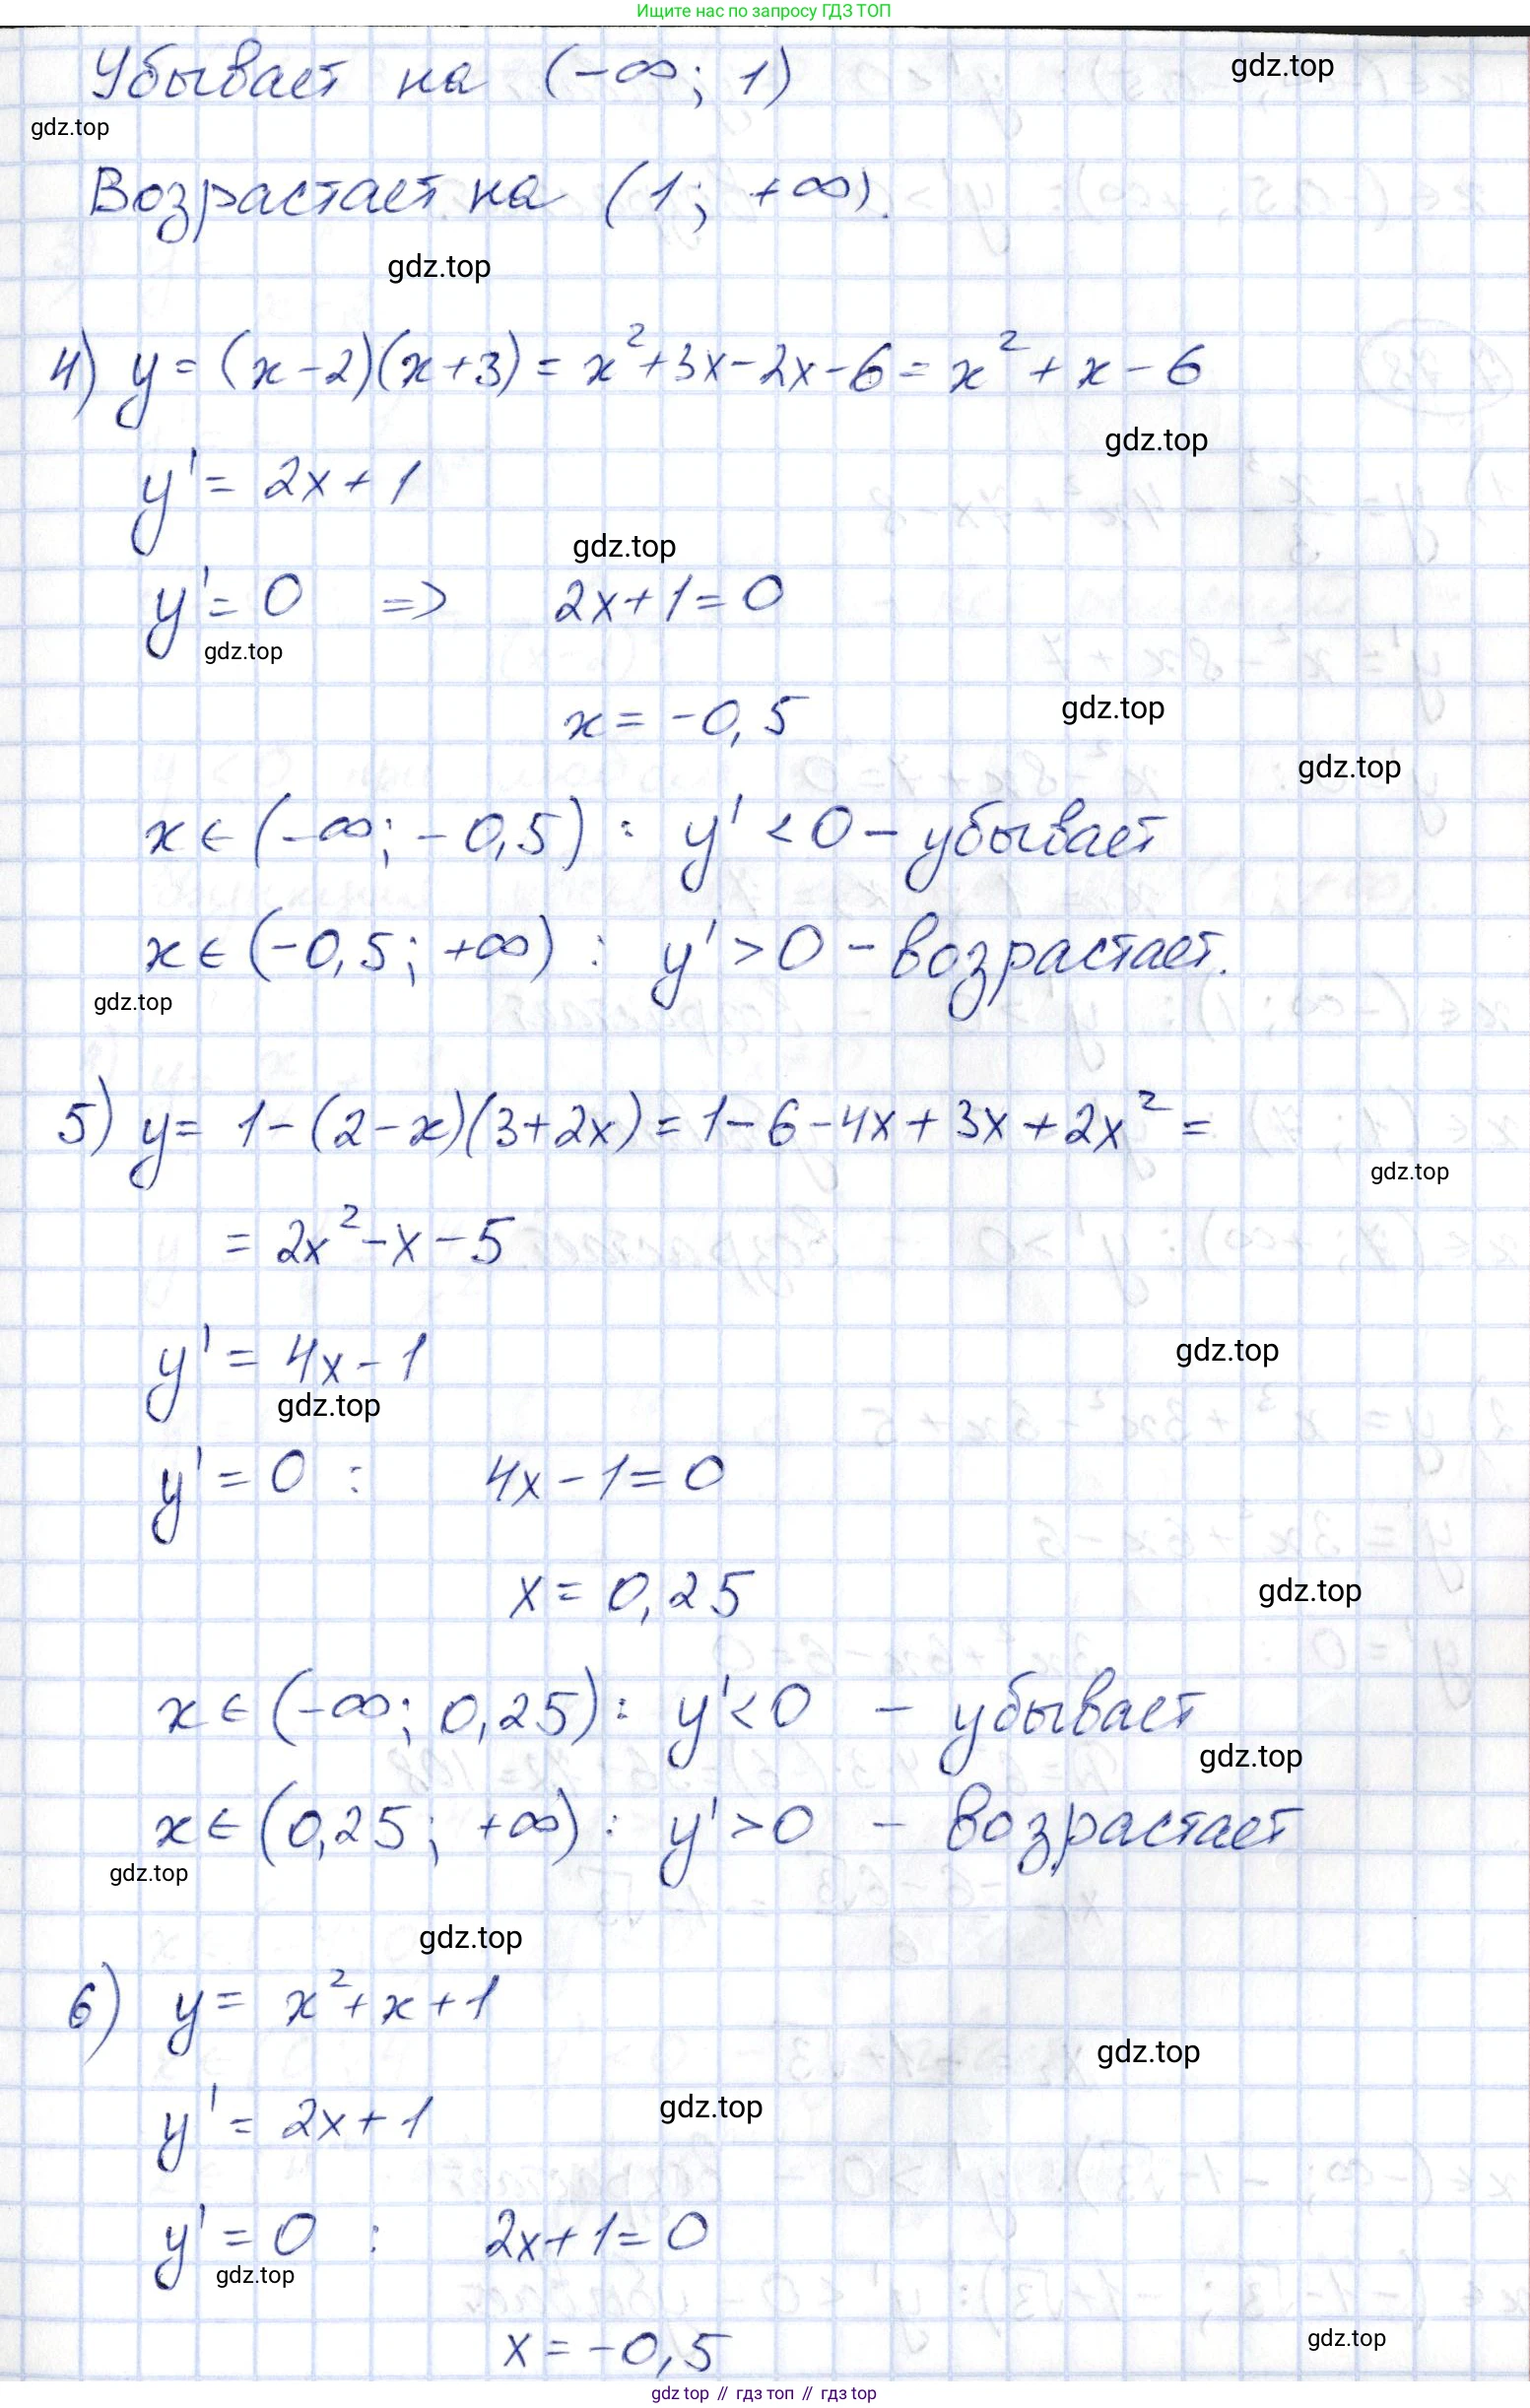 Ищите нас по запросу ГДЗ ТОП
Убывает на (-∞; 1)
gdz.top
gdz.top
Возрастает на (1; +∞).
gdz.top
4) y = (x-2)(x+3) = x²+3x-2x-6 = x²+x-6
gdz.top
y' = 2x+1
gdz.top
y' = 0 => 2x+1=0
gdz.top
x = -0,5
gdz.top
gdz.top
x ∈ (-∞; -0,5) : y' < 0 - убывает
x ∈ (-0,5; +∞) : y' > 0 - возрастает.
gdz.top
5) y = 1-(2-x)(3+2x) = 1-6-4x+3x+2x² =
gdz.top
= 2x²-x-5
y' = 4x-1
gdz.top
gdz.top
y' = 0 : 4x-1=0
x = 0,25
gdz.top
x ∈ (-∞; 0,25) : y' < 0 - убывает
gdz.top
x ∈ (0,25; +∞) : y' > 0 - возрастает
gdz.top
gdz.top
6) y = x²+x+1
gdz.top
y' = 2x+1
gdz.top
y' = 0 : 2x+1=0
gdz.top
x = -0,5
gdz.top
gdz top // гдз топ // gdz top